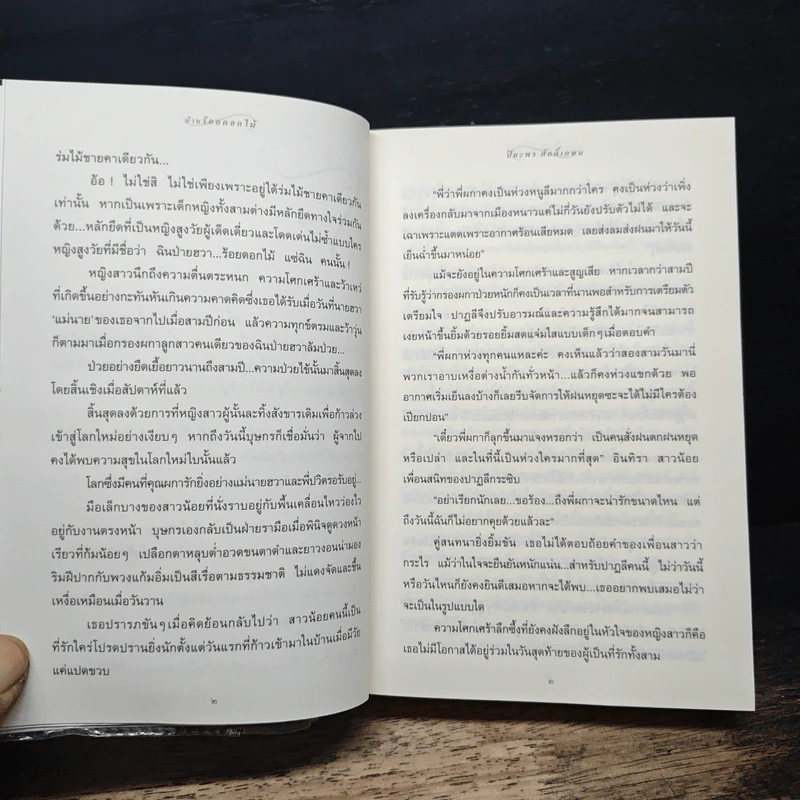 บ้านร้อยดอกไม้
ร่มไม้ชายคาเดียวกัน...
อ้อ ! ไม่ใช่สิ ไม่ใช่เพียงเพราะอยู่ใต้ร่มไม้ชายคาเดียวกัน
เท่านั้น หากเป็นเพราะเด็กหญิงทั้งสามต่างมีหลักยึดทางใจร่วมกัน
ด้วย...หลักยึดที่เป็นหญิงสูงวัยผู้เด็ดเดี่ยวและโดดเด่นไม่ซ้ำแบบใคร
หญิงสูงวัยที่มีชื่อว่า ฉินป่ายฮวา...ร้อยดอกไม้ แซ่ฉิน คนนั้น !
หญิงสาวนึกถึงความตื่นตระหนก ความโศกเศร้าและว้าเหว่
ที่เกิดขึ้นอย่างกะทันหันเกินความคาดคิดซึ่งเธอได้รับเมื่อวันที่นายฮวา
'แม่นาย' ของเธอจากไปเมื่อสามปีก่อน แล้วความทุกข์ตรมและว้าวุ่น
ก็ตามมาเมื่อกรองผกาลูกสาวคนเดียวของฉินป่ายฮวาล้มป่วย...
ป่วยอย่างยืดเยื้อยาวนานถึงสามปี...ความป่วยไข้นั้นมาสิ้นสุดลง
โดยสิ้นเชิงเมื่อสัปดาห์ที่แล้ว
สิ้นสุดลงด้วยการที่หญิงสาวผู้นั้นละทิ้งสังขารเดิมเพื่อก้าวล่วง
เข้าสู่โลกใหม่อย่างเงียบๆ หากถึงวันนี้บุษกรก็เชื่อมั่นว่า ผู้จากไป
คงได้พบความสุขในโลกใหม่ใบนั้นแล้ว
โลกซึ่งมีคนที่คุณผการักยิ่งอย่างแม่นายฮวาและพี่ปวิตรรอรับอยู่...
มือเล็กบางของสาวน้อยที่นั่งราบอยู่กับพื้นเคลื่อนไหวว่องไว
อยู่กับงานตรงหน้า บุษกรเองกลับเป็นฝ่ายรามือเมื่อพินิจดูดวงหน้า
เรียวที่ก้มน้อยๆ เปลือกตาหลุบต่ำอวดขนตาดำและยาวงอนน่ามอง
ริมฝีปากกับพวงแก้มอิ่มเป็นสีเรื่อตามธรรมชาติ ไม่แดงจัดและชื้น
เหงื่อเหมือนเมื่อวันวาน
เธอปรารภขันๆ เมื่อคิดย้อนกลับไปว่า สาวน้อยคนนี้เป็น
ที่รักใคร่โปรดปรานยิ่งนักตั้งแต่วันแรกที่ก้าวเข้ามาในบ้านเมื่อมีวัย
แค่แปดขวบ
๒
ปิยะพร ศักดิ์เกษม
"พี่ว่าพี่ผกาคงเป็นห่วงหนูลีมากกว่าใคร คงเป็นห่วงว่าเพิ่ง
ลงเครื่องกลับมาจากเมืองหนาวแค่ไม่กี่วันยังปรับตัวไม่ได้ และจะ
เฉาเพราะแดดเพราะอากาศร้อนเสียหมด เลยส่งลมส่งฝนมาให้วันนี้
เย็นฉ่ำขึ้นมาหน่อย"
แม้จะยังอยู่ในความโศกเศร้าและสูญเสีย หากเวลากว่าสามปี
ที่รับรู้ว่ากรองผกาป่วยหนักก็คงเป็นเวลาที่นานพอสำหรับการเตรียมตัว
เตรียมใจ ปาฏลีจึงปรับอารมณ์และความรู้สึกได้มากจนสามารถ
เงยหน้าขึ้นยิ้มด้วยรอยยิ้มสดแจ่มใสแบบเด็กๆ เมื่อตอบคำ
"พี่ผกาห่วงทุกคนแหละค่ะ คงเห็นแล้วว่าสองสามวันมานี้
พวกเราอาบเหงื่อต่างน้ำกันทั่วหน้า...แล้วก็คงห่วงแขกด้วย พอ
อากาศเริ่มเย็นลงบ้างก็เลยรีบจัดการให้ฝนหยุดซะจะได้ไม่มีใครต้อง
เปียกปอน"
"เดี๋ยวพี่ผกาก็ลุกขึ้นมาแจงหรอกว่า เป็นคนสั่งฝนตกฝนหยุด
หรือเปล่า และในที่นี้เป็นห่วงใครมากที่สุด" อินทิรา สาวน้อย
เพื่อนสนิทของปาฏลีกระซิบ
"อย่าเรียกนักเลย...ขอร้อง...ถึงพี่ผกาจะน่ารักขนาดไหน แต่
ถึงวันนี้ฉันก็ไม่อยากคุยด้วยแล้วละ"
คู่สนทนายิ่งยิ้มขัน เธอไม่ได้ตอบถ้อยคำของเพื่อนสาวว่า
กระไร แม้ว่าในใจจะยืนยันหนักแน่น...สำหรับปาฏลีคนนี้ ไม่ว่าวันนี้
หรือวันไหนก็ยังคงยินดีเสมอหากจะได้พบ...เธออยากพบเสมอไม่ว่า
จะเป็นในรูปแบบใด
ความโศกเศร้าลึกซึ้งที่ยังคงฝังลึกอยู่ในหัวใจของหญิงสาวก็คือ
เธอไม่มีโอกาสได้อยู่ร่วมในวันสุดท้ายของผู้เป็นที่รักทั้งสาม
๓